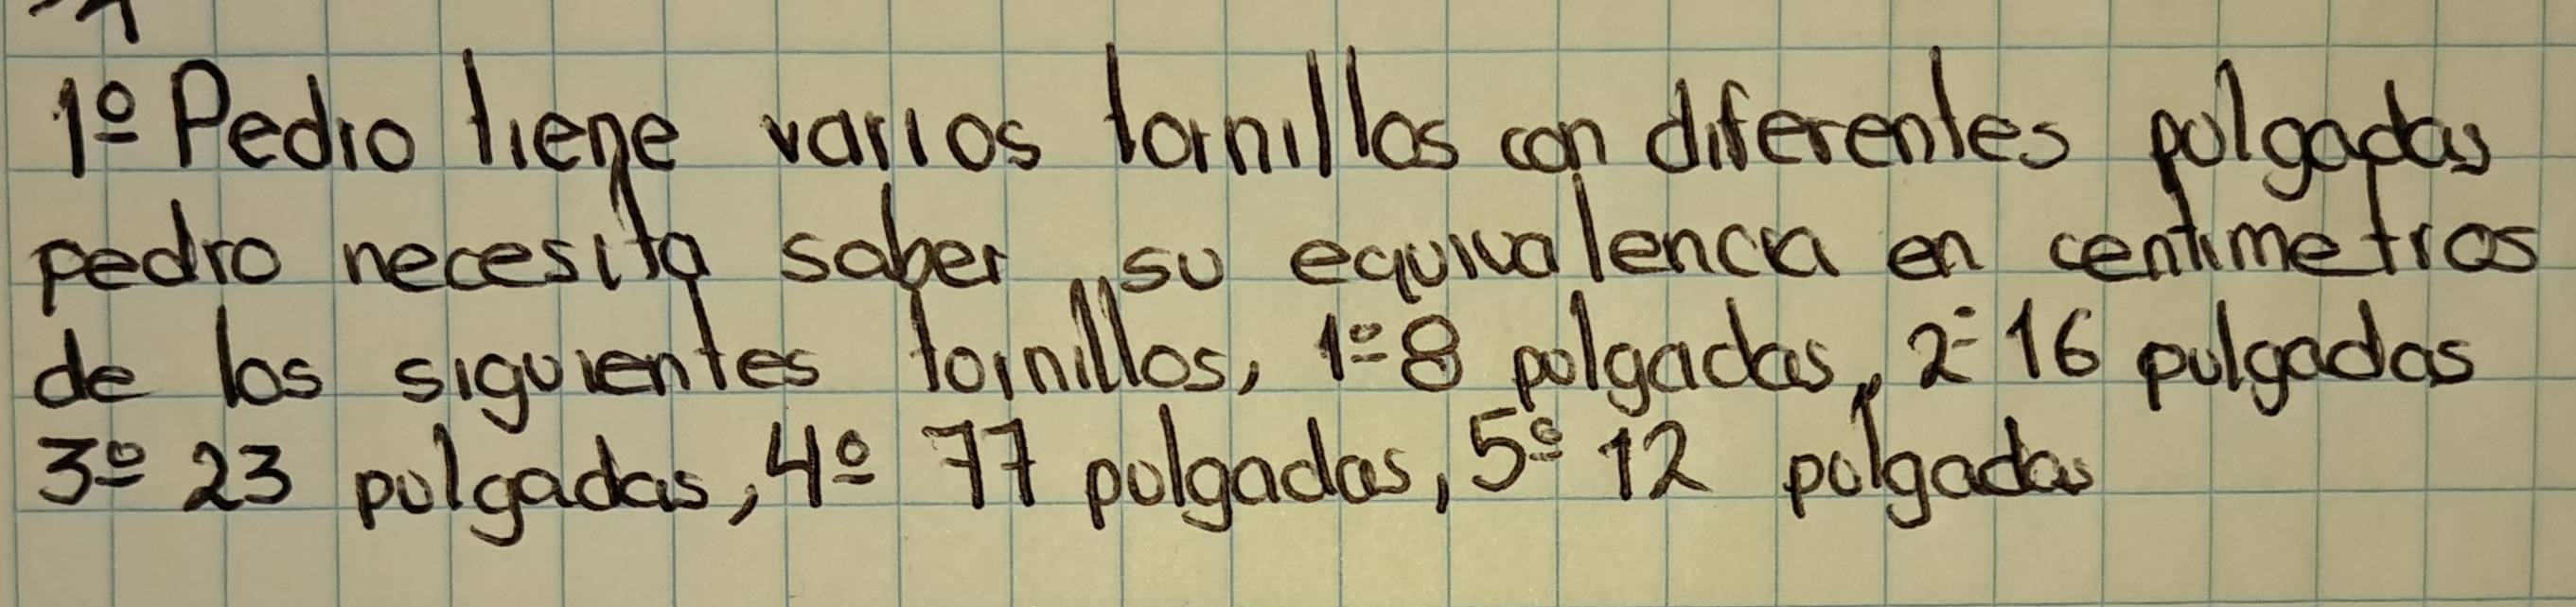 1º Pedro tiene varios tornillos con diferentes pulgadas
pedro necesita saber su equivalencia en centimetros
de los siguientes tornillos, 1º 8 pulgadas, 2º 16 pulgadas
3º 23 pulgadas, 4º 77 pulgadas, 5º 12 pulgadas